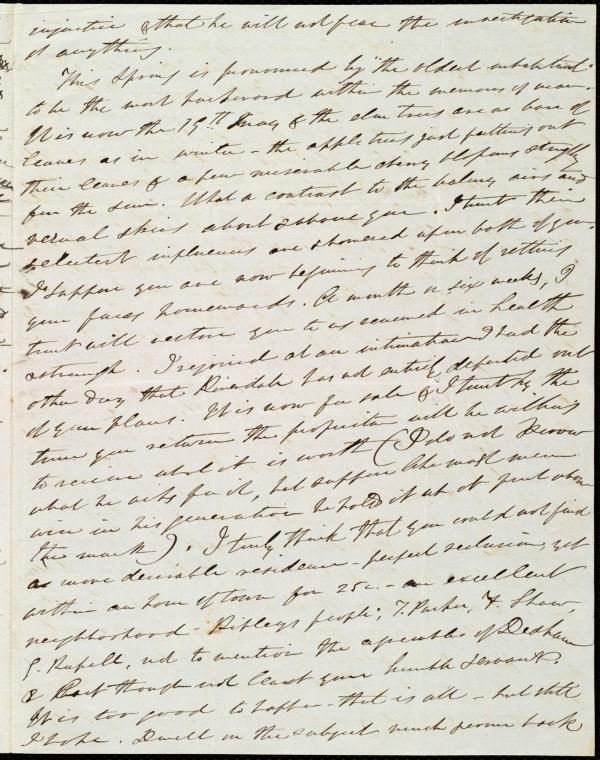 injustice & that he will not fear the investigation
of anything.
This Spring is pronounced by "the oldest inhabitant"
to be the most backward within the memory of man.
It is now the 19th May & the elm trees are as bare of
leaves as in winter - the apple trees just putting out
their leaves & a few miserable cherry blossoms struggling
for the sun. What a contrast to the balmy airs and
vernal skies about & above you. I trust their
selectest influences are showered upon both of you.
I suppose you are now beginning to think of setting
your faces homewards. A month or six weeks, I
trust will restore you to us renewed in health
& strength. I rejoiced at an intimation I had the
other day that Riverdale has not entirely departed out
of your plans. It is now for sale & I trust by the
time you return the proprietor will be willing
to receive what it is worth (I do not know
what he asks for it, but suppose like most men
wise in his generation he holds it at it just above
the mark). I truly think that you could not find
a more desirable residence - perfect seclusion, yet
within an hour of town for 25c. - an excellent
neighborhood - Ripley's people, T. Parker, F. Shaw,
G. Russell, not to mention the agreeables of Dedham
& last though not least your humble servant.
It is too good to happen - that is all - but still
I hope. Dwell on the subject much